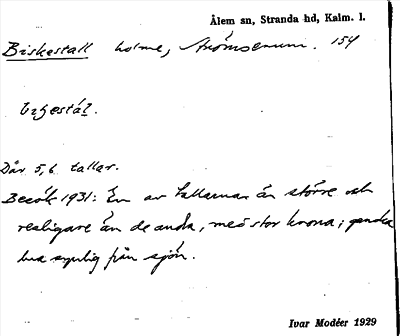 Ålem sn, Stranda hd, Kalm. l.
Biskestall holme, Strömserum. 154
Där 5,6 tallar.
Besök 1931: En av tallarna är större och
resligare än de andra, med stor krona; ganska
bra synlig från sjön.
Ivar Modéer 1929